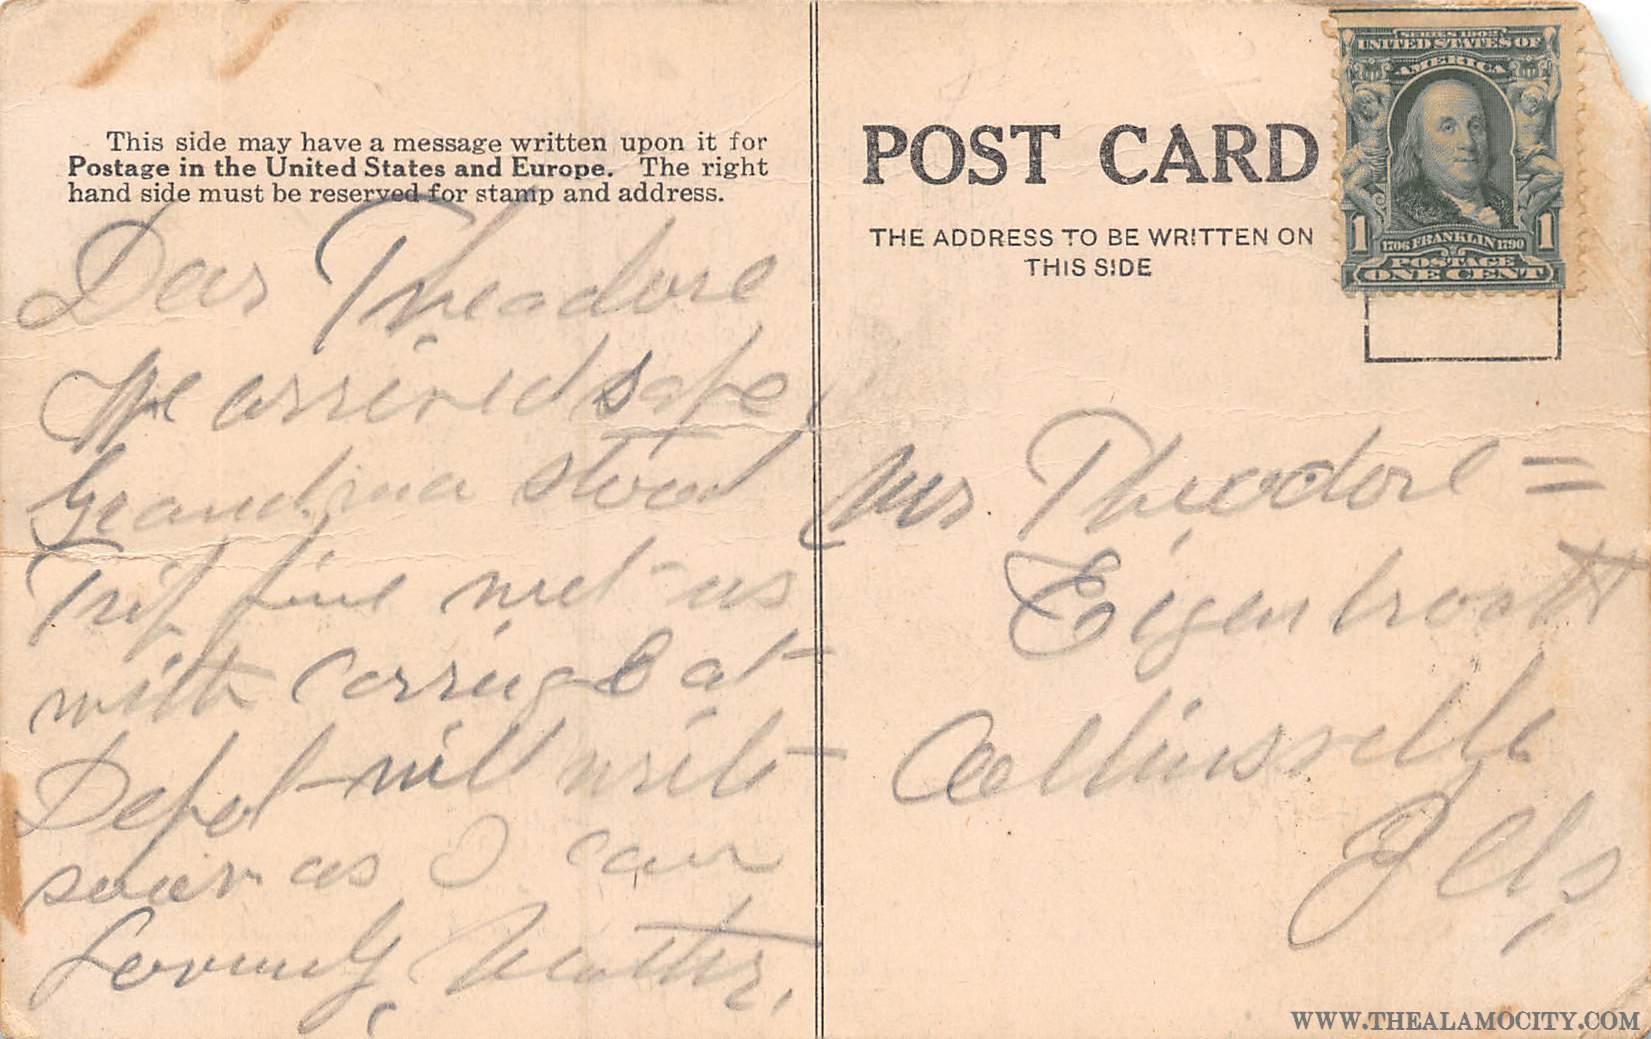 This side may have a message written upon it for
Postage in the United States and Europe. The right
hand side must be reserved for stamp and address.
Dear Theadore
We arrived safe,
Grandma stood
Trip fine met us
with carriage at
Depot will write
soon as I can
Lovingly, Mother.
POST CARD
THE ADDRESS TO BE WRITTEN ON
THIS SIDE
SERIES 1902
UNITED STATES OF
AMERICA
1 1706 FRANKLIN 1790 1
POSTAGE
ONE CENT
Mr Theodore =
Eigenbrodt
Collinsville
Ills,
WWW.THEALAMOCITY.COM